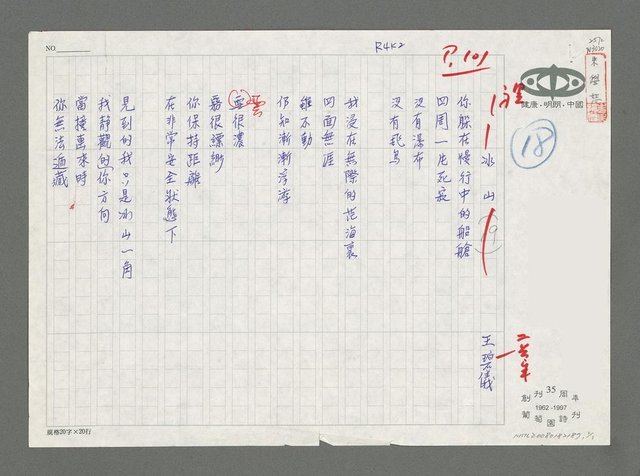 NO.
R4K2
P.101
冰山
19
18
王碧儀
你躲在慢行中的船艙
四周一片死寂
沒有瀑布
沒有飛鳥
我浸在無際的茫海裏
四面無涯
雖不動
仍知漸漸浮游
雲很濃
霧很縹緲
你保持距離
在非常安全狀態下
見到的我只是冰山一角
我靜觀的你方向
當撞車來時
你無法遁藏
健康·明朗·中國
創刊35周年
1962-1997
葡萄園詩刊
規格20字×20行